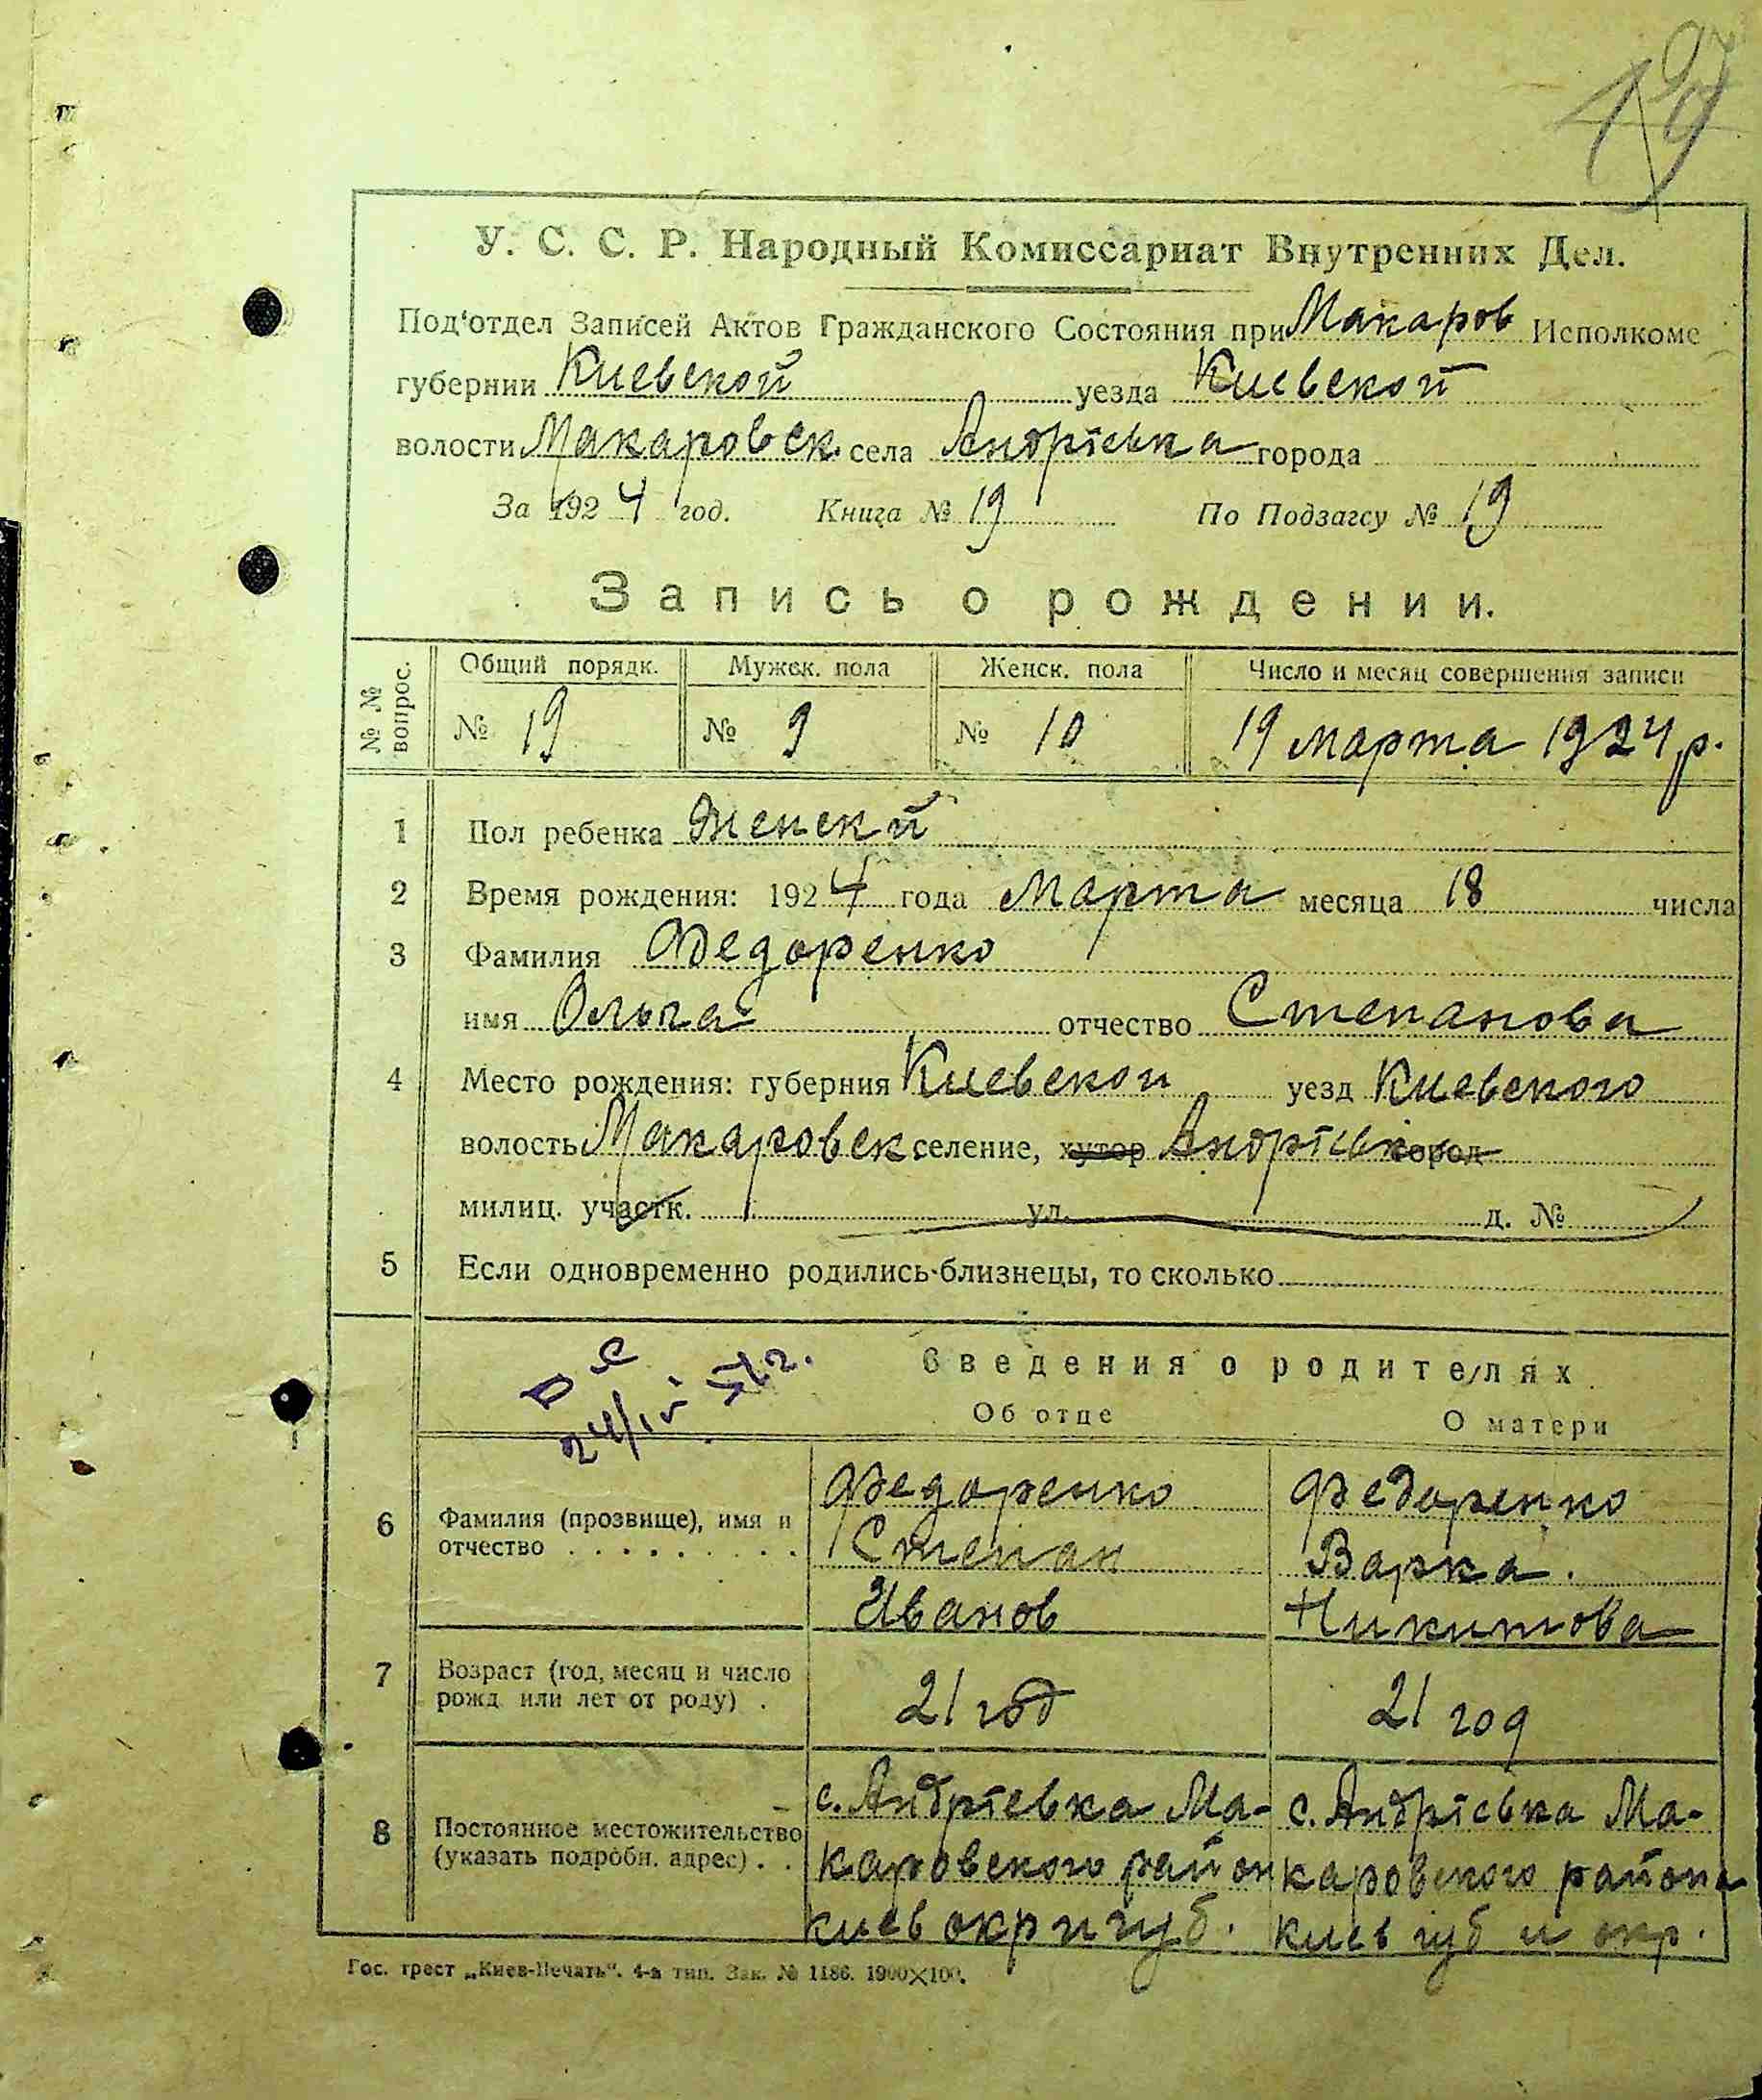 У. С. С. Р. Народный Комиссариат Внутренних Дел.
Под'отдел Записей Актов Гражданского Состояния при Макаров Исполкоме
губернии Киевской уезда Киевской
волости Макаровск. села Андрієвка города
За 1924 год. Книга № 19 По Подзагсу № 19
Запись о рождении.
№ № вопрос. Общий порядк. Мужск. пола Женск. пола Число и месяц совершения записи
№ 19 № 9 № 10 19 марта 1924 р.
1 Пол ребенка Женский
2 Время рождения: 1924 года Марта месяца 18 числа
3 Фамилия Федоренко
имя Ольга отчество Степанова
4 Место рождения: губерния Киевской уезд Киевского
волость Макаровск селение, хутор Андрієвка город
милиц. участк. ул. д. №
5 Если одновременно родились близнецы, то сколько
Сведения о родителях
Об отце О матери
24/IV
6 Фамилия (прозвище), имя и отчество Федоренко Федоренко
Степан Варка.
Иванов Никитова
7 Возраст (год, месяц и число рожд. или лет от роду) . 21 год 21 год
8 Постоянное местожительство (указать подробн. адрес) . . с. Андрієвка Ма- с. Андрієвка Ма-
каровского район каровского района
киев окр и губ. киев губ и окр.
Гос. трест „Киев-Печать". 4-а тип. Зак. № 1186. 1900×100.